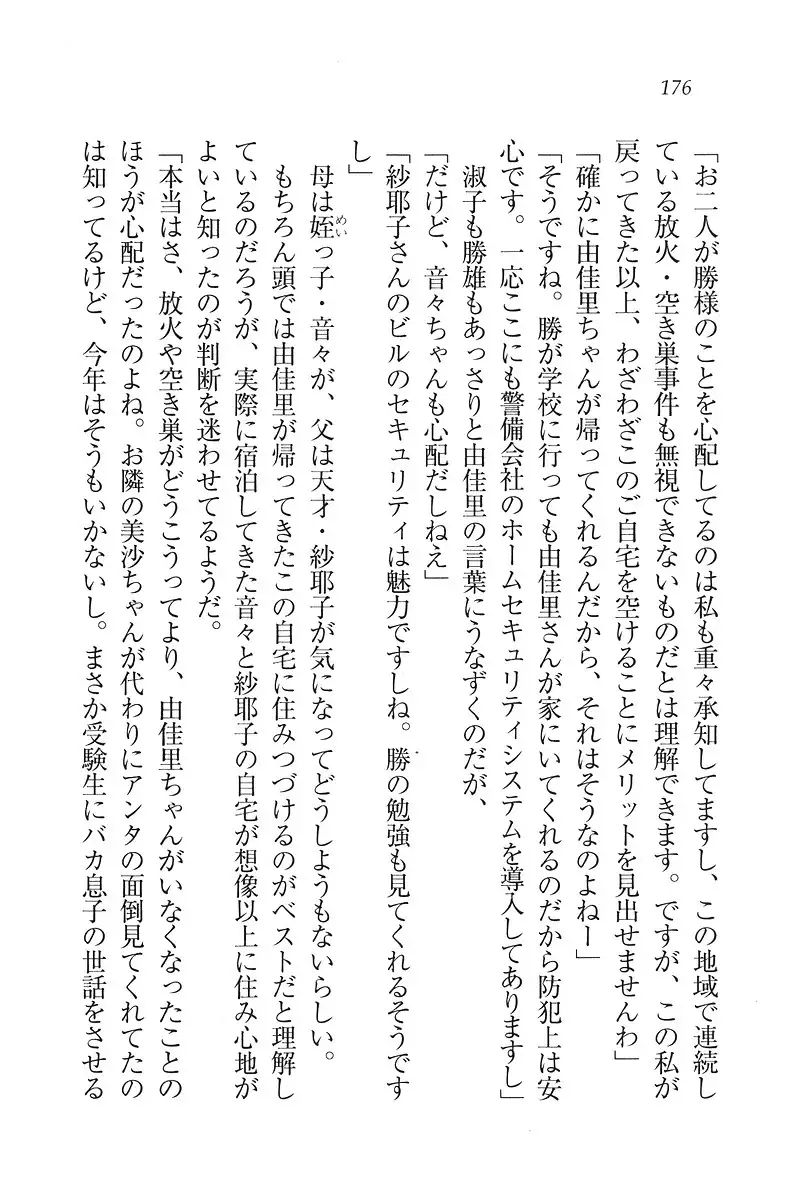 176
「お二人が勝様のことを心配してるのは私も重々承知してますし、この地域で連続し
ている放火・空き巣事件も無視できないものだとは理解できます。ですが、この私が
戻ってきた以上、わざわざこのご自宅を空けることにメリットを見出せませんわ」
「確かに由佳里ちゃんが帰ってくれるんだから、それはそうなのよねー」
「そうですね。勝が学校に行っても由佳里さんが家にいてくれるのだから防犯上は安
心です。一応ここにも警備会社のホームセキュリティシステムを導入してありますし」
淑子も勝雄もあっさりと由佳里の言葉にうなずくのだが、
「だけど、音々ちゃんも心配だしねえ」
「紗耶子さんのビルのセキュリティは魅力ですしね。勝の勉強も見てくれるそうです
し」
母は姪っ子・音々が、父は天才・紗耶子が気になってどうしようもないらしい。
めい
もちろん頭では由佳里が帰ってきたこの自宅に住みつづけるのがベストだと理解し
ているのだろうが、実際に宿泊してきた音々と紗耶子の自宅が想像以上に住み心地が
よいと知ったのが判断を迷わせてるようだ。
「本当はさ、放火や空き巣がどうこうってより、由佳里ちゃんがいなくなったことの
ほうが心配だったのよね。お隣の美沙ちゃんが代わりにアンタの面倒見てくれてたの
は知ってるけど、今年はそうもいかないし。まさか受験生にバカ息子の世話をさせる